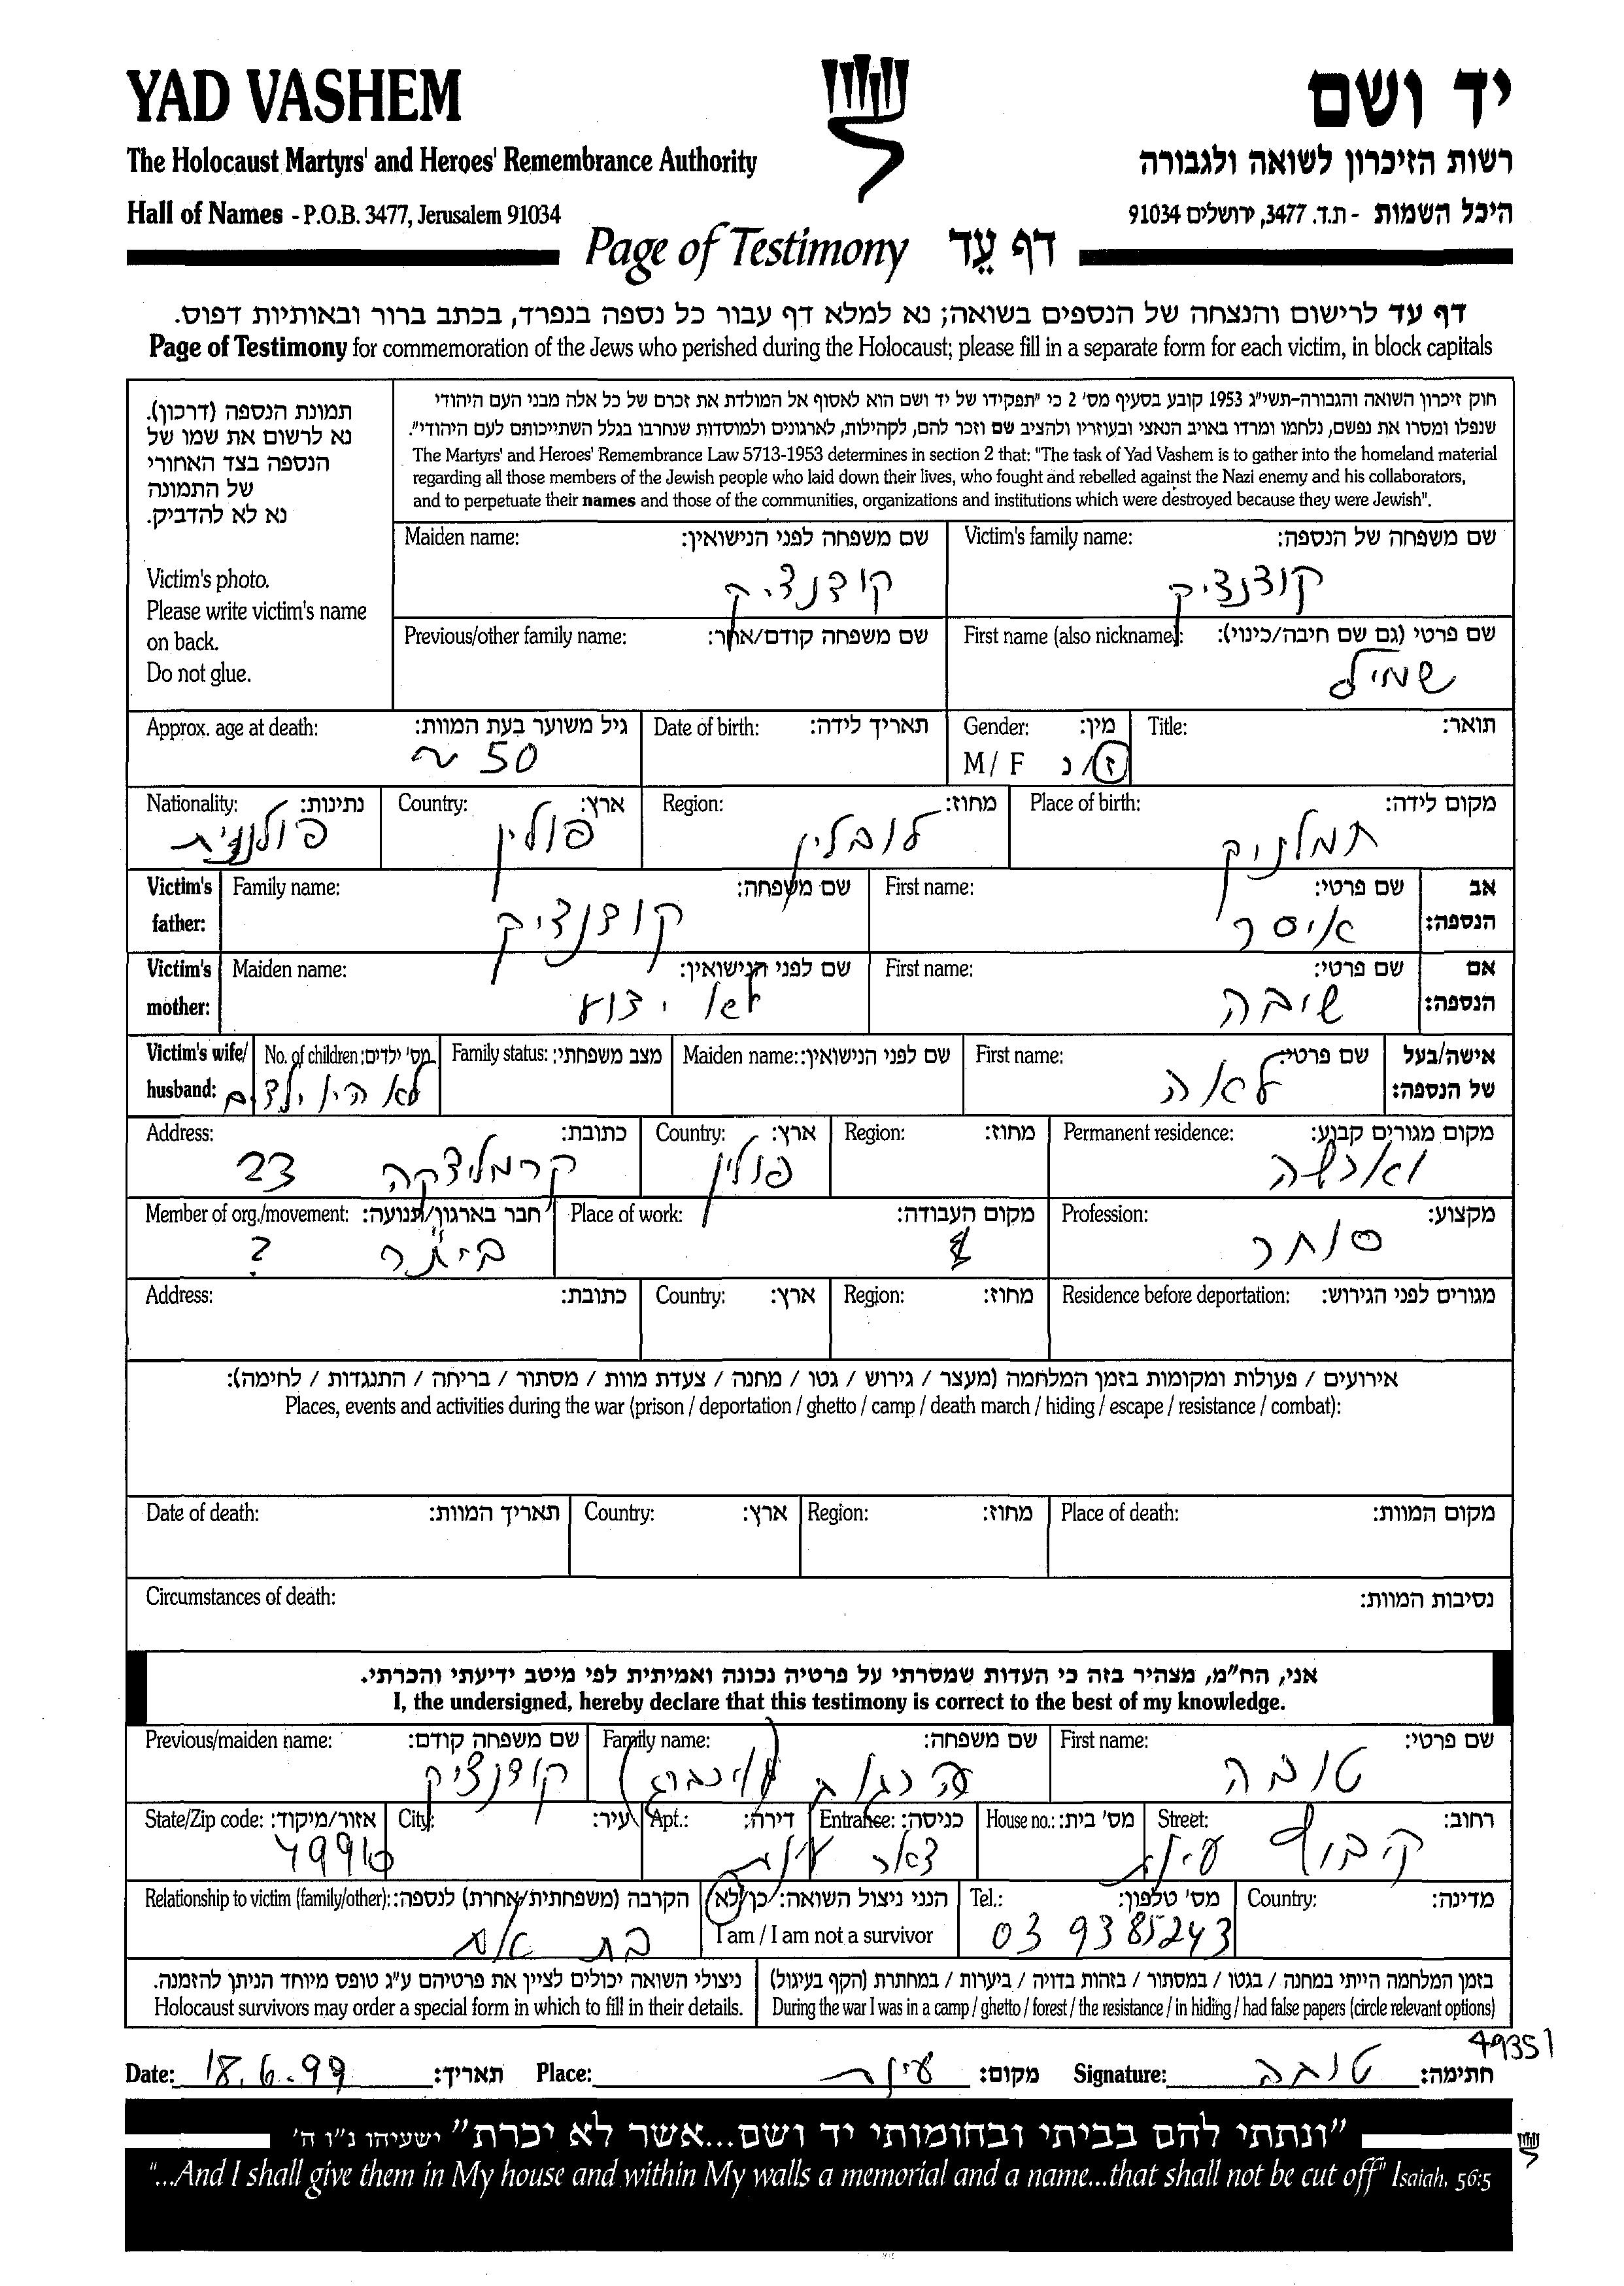 YAD VASHEM
יד ושם
The Holocaust Martyrs' and Heroes' Remembrance Authority
רשות הזיכרון לשואה ולגבורה
Hall of Names - P.O.B. 3477, Jerusalem 91034
היכל השמות - ת.ד. 3477, ירושלים 91034
Page of Testimony דף עֵד
דף עד לרישום והנצחה של הנספים בשואה; נא למלא דף עבור כל נספה בנפרד, בכתב ברור ובאותיות דפוס.
Page of Testimony for commemoration of the Jews who perished during the Holocaust; please fill in a separate form for each victim, in block capitals
תמונת הנספה (דרכון).
נא לרשום את שמו של
הנספה בצד האחורי
של התמונה
נא לא להדביק.
Victim's photo.
Please write victim's name
on back.
Do not glue.
חוק זיכרון השואה והגבורה-תשי"ג 1953 קובע בסעיף מס' 2 כי "תפקידו של יד ושם הוא לאסוף אל המולדת את זכרם של כל אלה מבני העם היהודי
שנפלו ומסרו את נפשם, נלחמו ומרדו באויב הנאצי ובעוזריו ולהציב שם וזכר להם, לקהילות, לארגונים ולמוסדות שנחרבו בגלל השתייכותם לעם היהודי".
The Martyrs' and Heroes' Remembrance Law 5713-1953 determines in section 2 that: "The task of Yad Vashem is to gather into the homeland material
regarding all those members of the Jewish people who laid down their lives, who fought and rebelled against the Nazi enemy and his collaborators,
and to perpetuate their names and those of the communities, organizations and institutions which were destroyed because they were Jewish".
שם משפחה של הנספה: Victim's family name: שם משפחה לפני הנישואין: Maiden name:
קודנציק קודנציק
שם פרטי (גם שם חיבה/כינוי): First name (also nickname): שם משפחה קודם/אחר: Previous/other family name:
שמיל
תואר: Title: מין: Gender: תאריך לידה: Date of birth: גיל משוער בעת המוות: Approx. age at death:
ז/נ M/ F ~ 50
מקום לידה: Place of birth: מחוז: Region: ארץ: Country: נתינות: Nationality:
חמלניק לובלין פולין פולנית
אב הנספה: שם פרטי: First name: שם משפחה: Family name: Victim's father:
איסר קודנציק
אם הנספה: שם פרטי: First name: שם לפני הנישואין: Maiden name: Victim's mother:
שיבה לא ידוע
אישה/בעל של הנספה: שם פרטי: First name: שם לפני הנישואין: Maiden name: מצב משפחתי: Family status: מס' ילדים: No. of children: Victim's wife/ husband:
לאה לא היו ילדים
מקום מגורים קבוע: Permanent residence: מחוז: Region: ארץ: Country: כתובת: Address:
וארשה פולין קרמליצקה 23
מקצוע: Profession: מקום העבודה: Place of work: חבר בארגון/תנועה: Member of org./movement:
סוחר בית"ר ?
מגורים לפני הגירוש: Residence before deportation: מחוז: Region: ארץ: Country: כתובת: Address:
אירועים / פעולות ומקומות בזמן המלחמה (מעצר / גירוש / גטו / מחנה / צעדת מוות / מסתור / בריחה / התנגדות / לחימה):
Places, events and activities during the war (prison / deportation / ghetto / camp / death march / hiding / escape / resistance / combat):
מקום המוות: Place of death: מחוז: Region: ארץ: Country: תאריך המוות: Date of death:
נסיבות המוות: Circumstances of death:
אני, הח"מ, מצהיר בזה כי העדות שמסרתי על פרטיה נכונה ואמיתית לפי מיטב ידיעתי והכרתי.
I, the undersigned, hereby declare that this testimony is correct to the best of my knowledge.
שם פרטי: First name: שם משפחה: Family name: שם משפחה קודם: Previous/maiden name:
טובה קודנציק
רחוב: Street: מס' בית: House no.: כניסה: Entrance: דירה: Apt.: עיר: City: אזור/מיקוד: State/Zip code:
קבוץ עינת 49910
מדינה: Country: מס' טלפון: Tel.: הנני ניצול השואה: כן/לא הקרבה (משפחתית/אחרת) לנספה: Relationship to victim (family/other):
03 9385243 I am / I am not a survivor בת אח
בזמן המלחמה הייתי במחנה / בגטו / במסתור / בזהות בדויה / ביערות / במחתרת (הקף בעיגול)
During the war I was in a camp / ghetto / forest / the resistance / in hiding / had false papers (circle relevant options)
ניצולי השואה יכולים לציין את פרטיהם ע"ג טופס מיוחד הניתן להזמנה.
Holocaust survivors may order a special form in which to fill in their details.
49351
חתימה: טובה Signature: מקום: עינת Place: תאריך: 18.6.99 Date:
"ונתתי להם בביתי ובחומותי יד ושם...אשר לא יכרת" ישעיהו נ"ו ה'
"...And I shall give them in My house and within My walls a memorial and a name...that shall not be cut off" Isaiah, 56:5